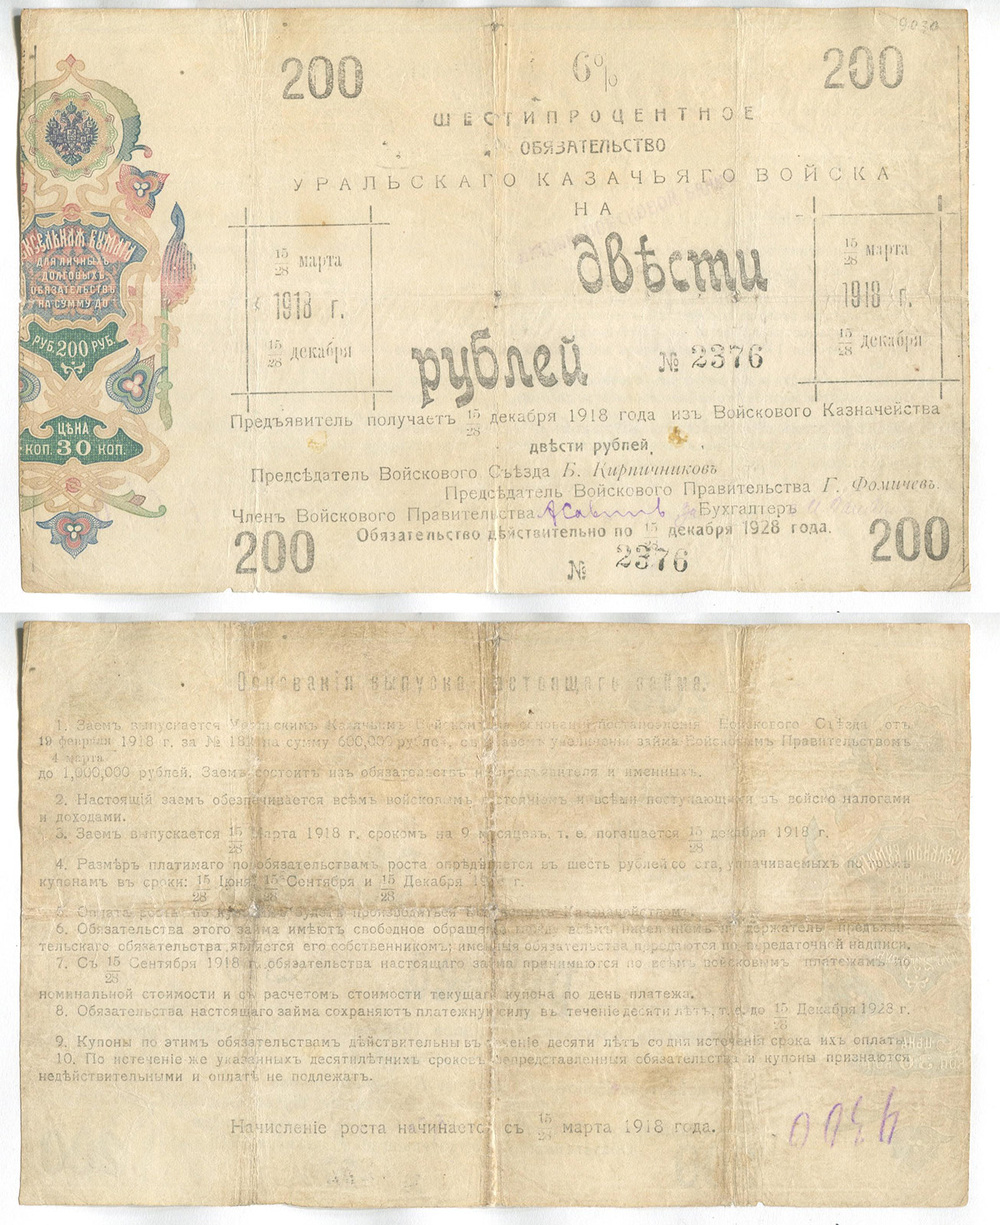 9030
200
6%
200
ШЕСТИПРОЦЕНТНОЕ
ОБЯЗАТЕЛЬСТВО
УРАЛЬСКАГО КАЗАЧЬЯГО ВОЙСКА
НА
двѣсти
рублей
15/28 марта
1918 г.
15/28 декабря
15/28 марта
1918 г.
15/28 декабря
№ 2376
БУМАГА
ДЛЯ ЛИЧНЫХЪ
ДОЛГОВЫХЪ
ОБЯЗАТЕЛЬСТВЪ
НА СУММУ ДО
РУБ. 200 РУБ.
ЦѢНА
КОП. 30 КОП.
Предъявитель получаетъ 15/28 декабря 1918 года изъ Войскового Казначейства
двѣсти рублей.
Предсѣдатель Войскового Съѣзда Б. Кирпичниковъ
Предсѣдатель Войскового Правительства Г. Фомичевъ.
Членъ Войскового Правительства Бухгалтеръ
Обязательство дѣйствительно по 15/28 декабря 1928 года.
200
№ 2376
200
Основанія выпуска настоящаго займа.
1. Заемъ выпускается Уральскимъ Казачьимъ Войскомъ на основаніи постановленія Войскового Съѣзда отъ
19 февраля/4 марта 1918 г. за № 18 на сумму 600,000 рублей, съ правомъ увеличенія займа Войсковымъ Правительствомъ
до 1,000,000 рублей. Заемъ состоитъ изъ обязательствъ на предъявителя и именныхъ.
2. Настоящій заемъ обезпечивается всѣмъ войсковымъ достояніемъ и всѣми поступающими въ войско налогами
и доходами.
3. Заемъ выпускается 15/28 Марта 1918 г. срокомъ на 9 мѣсяцевъ, т. е. погашается 15/28 декабря 1918 г.
4. Размѣръ платимаго по обязательствамъ роста опредѣляется въ шесть рублей со ста, уплачиваемыхъ по
купонамъ въ сроки: 15/28 Іюня, 15/28 Сентября и 15/28 Декабря г.
5. Оплата роста по купонамъ будетъ производиться Казначействомъ.
6. Обязательства этого займа имѣютъ свободное обращеніе
тельскаго обязательства является его собственникомъ; именныя обязательства передаются по передаточной надписи.
7. Съ 15/28 Сентября 1918 г. обязательства настоящаго займа принимаются по всѣмъ войсковымъ платежамъ по
номинальной стоимости и съ расчетомъ стоимости текущаго купона по день платежа.
8. Обязательства настоящаго займа сохраняютъ платежную силу въ теченіе десяти лѣтъ, т. е. до 15/28 Декабря 1928 г.
9. Купоны по этимъ обязательствамъ дѣйствительны въ теченіе десяти лѣтъ со дня истеченія срока ихъ оплаты.
10. По истеченіе же указанныхъ десятилѣтнихъ сроковъ непредставленныя обязательства и купоны признаются
недѣйствительными и оплатѣ не подлежатъ.
Начисленіе роста начинается съ 15/28 марта 1918 года.